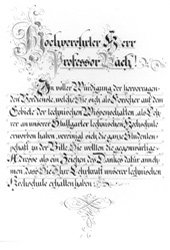 Hochverehrter Herr
Professor Bach!
In voller Würdigung der hervorragen-
den Verdienste, welche Sie sich als Forscher auf dem
Gebiete der technischen Wissenschaften, als Leh-
rer an unserer Stuttgarter technischen Hochschule
erworben haben, vereinigt sich die ganze Studenten-
schaft zu der Bitte, Sie wollten die gegenwärtige
Adresse als ein Zeichen des Dankes dafür anneh-
men, dass Sie Ihre Lehrkraft unserer technischen
Hochschule erhalten haben.